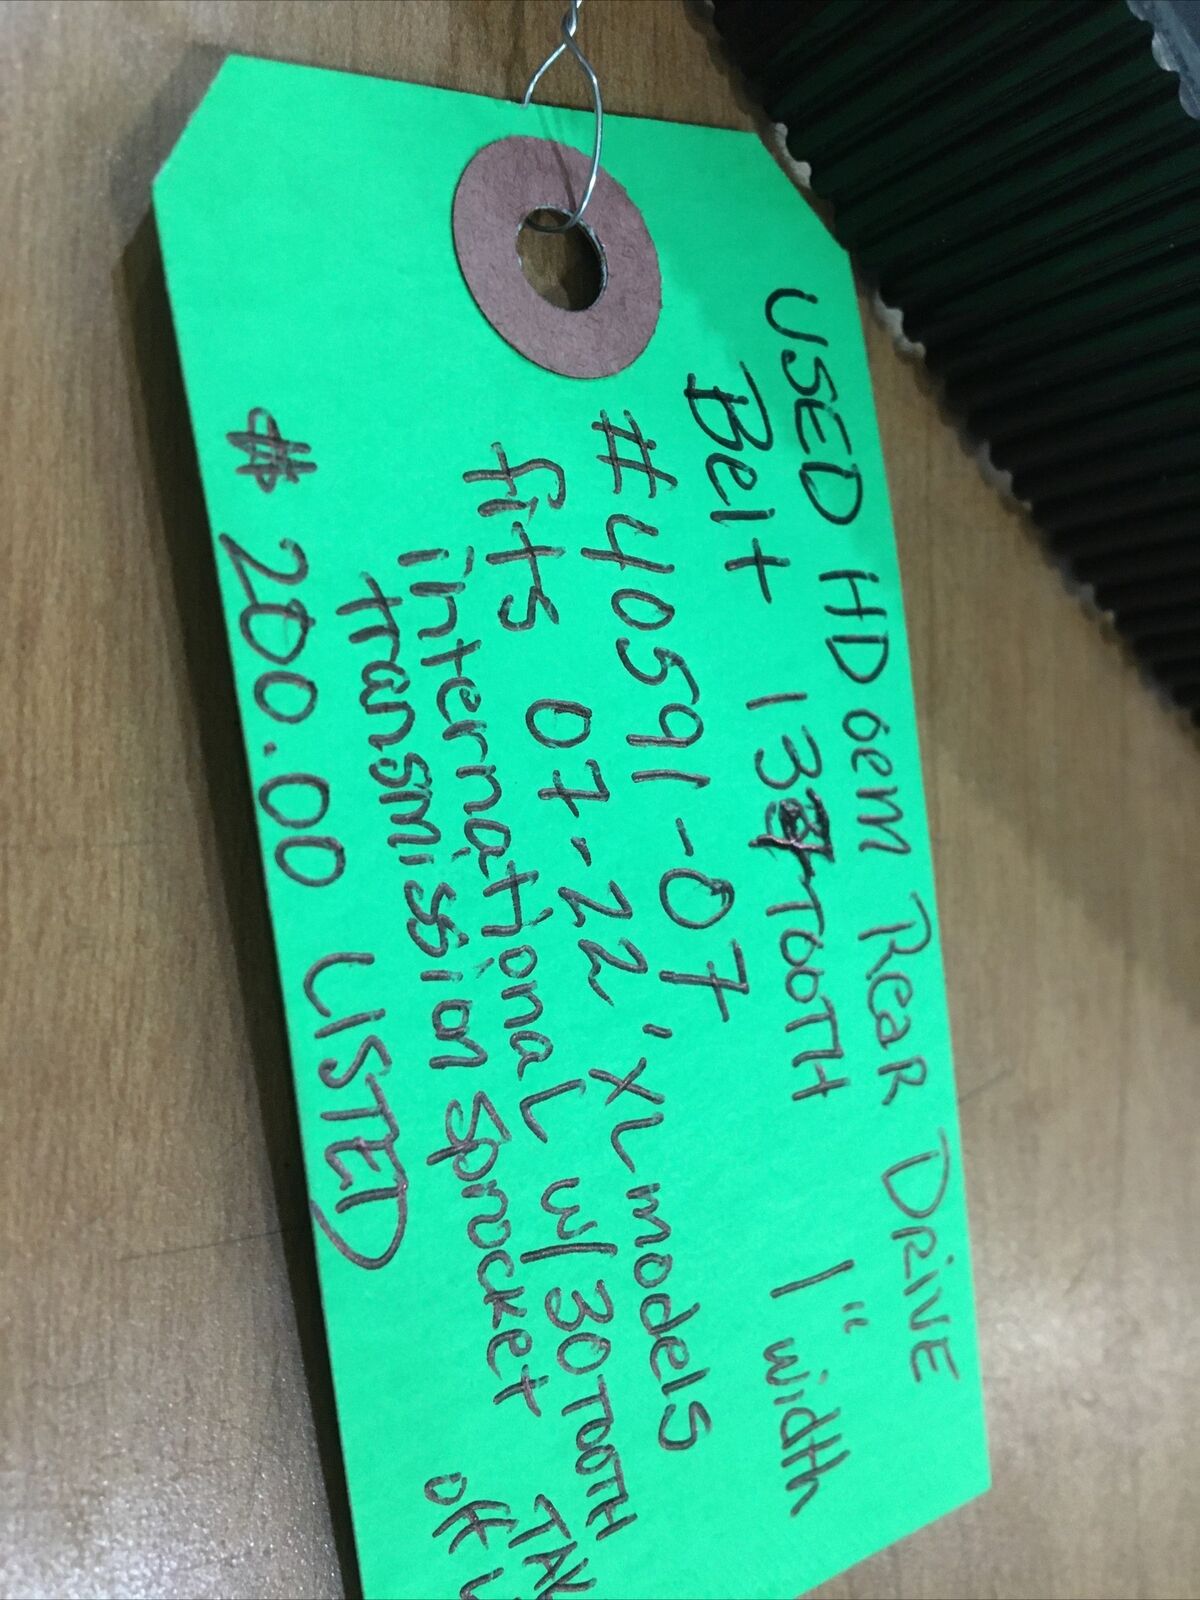 USED HD oem Rear DRiVE
Belt 137 TOOTH 1" width
#40591-07
fits 07-22' XL models
international w/ 30 TOOTH
transmission sprocket
off
$ 200.00 LISTED